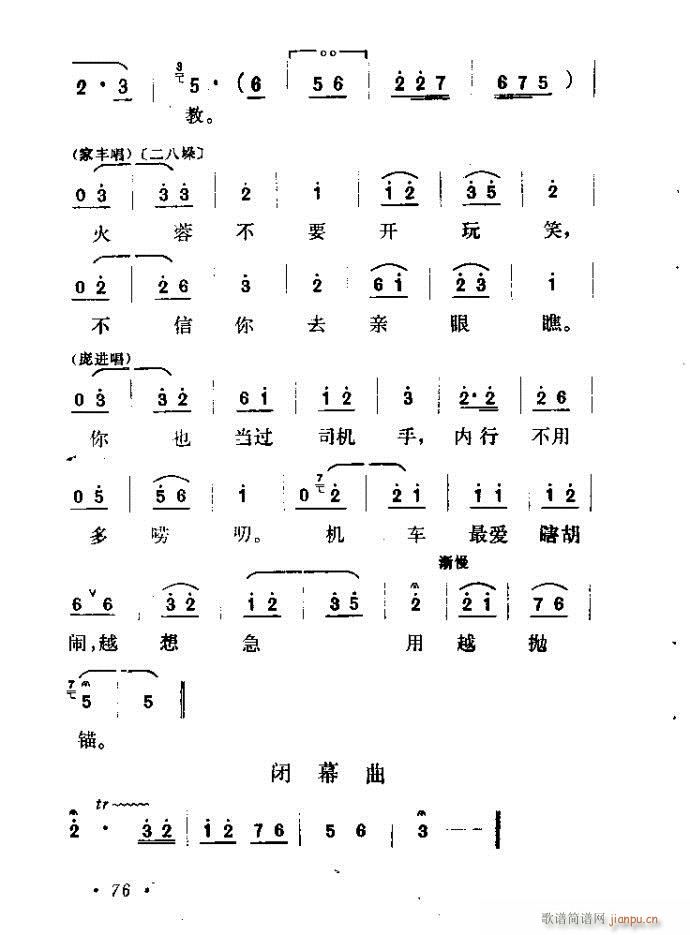 2 · 3 | 5 · ( 6 | 5 6 | 2 2 7 | 6 7 5 ) |
教。
(家丰唱) 〔二八垛〕
0 3 | 3 3 | 2 | 1 | 1 2 | 3 5 | 2
火 蓉 不 要 开 玩 笑,
0 2 | 2 6 | 3 | 2 | 6 1 | 2 3 | 1
不 信 你 去 亲 眼 瞧。
(庞进唱)
0 3 | 3 2 | 6 1 | 1 2 | 3 | 2 · 2 | 2 6
你 也 当过 司机 手, 内行 不用
0 5 | 5 6 | 1 | 0 2 | 2 1 | 1 1 | 1 2
多 唠 叨。 机 车 最爱 瞎胡
渐慢
6 6 | 3 2 | 1 2 | 3 5 | 2 | 2 1 | 7 6
闹,越 想 急 用 越 抛
5 | 5
锚。
闭 幕 曲
tr
2 · 3 2 | 1 2 7 6 | 5 6 | 3 — —
· 76 ·
歌谱简谱网 jianpu.cn